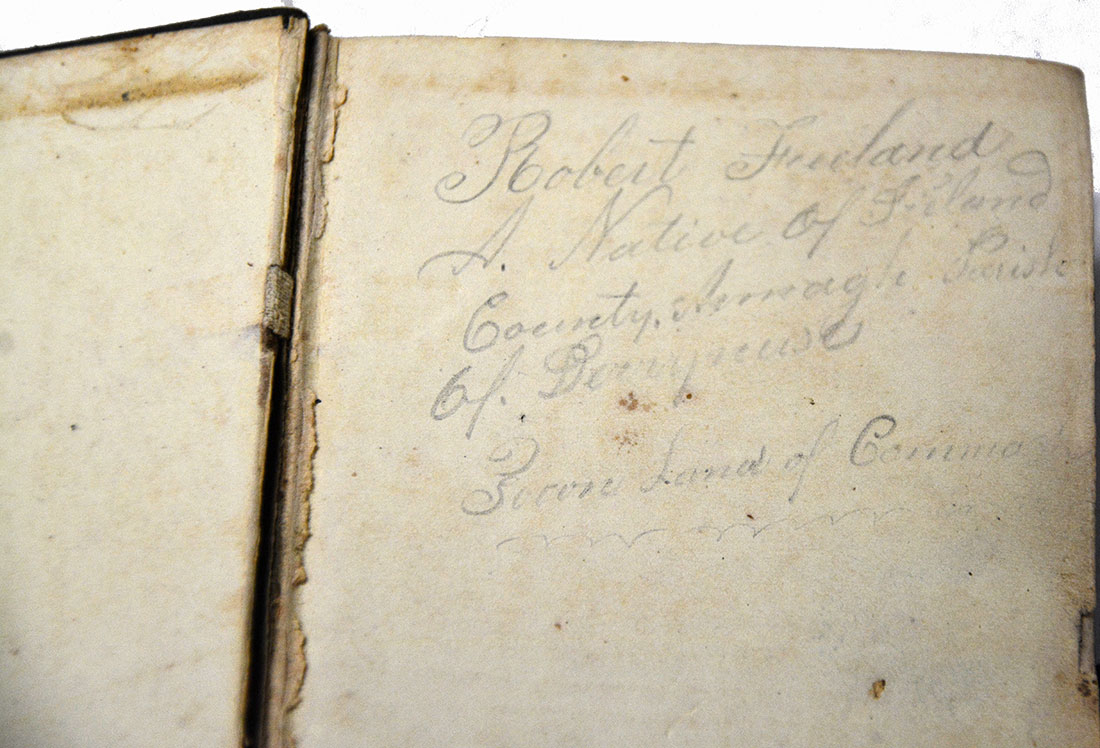 Robert Freeland
A. Native Of Ireland
County. Armagh Parish
Of. Derrynuse
Town Land of